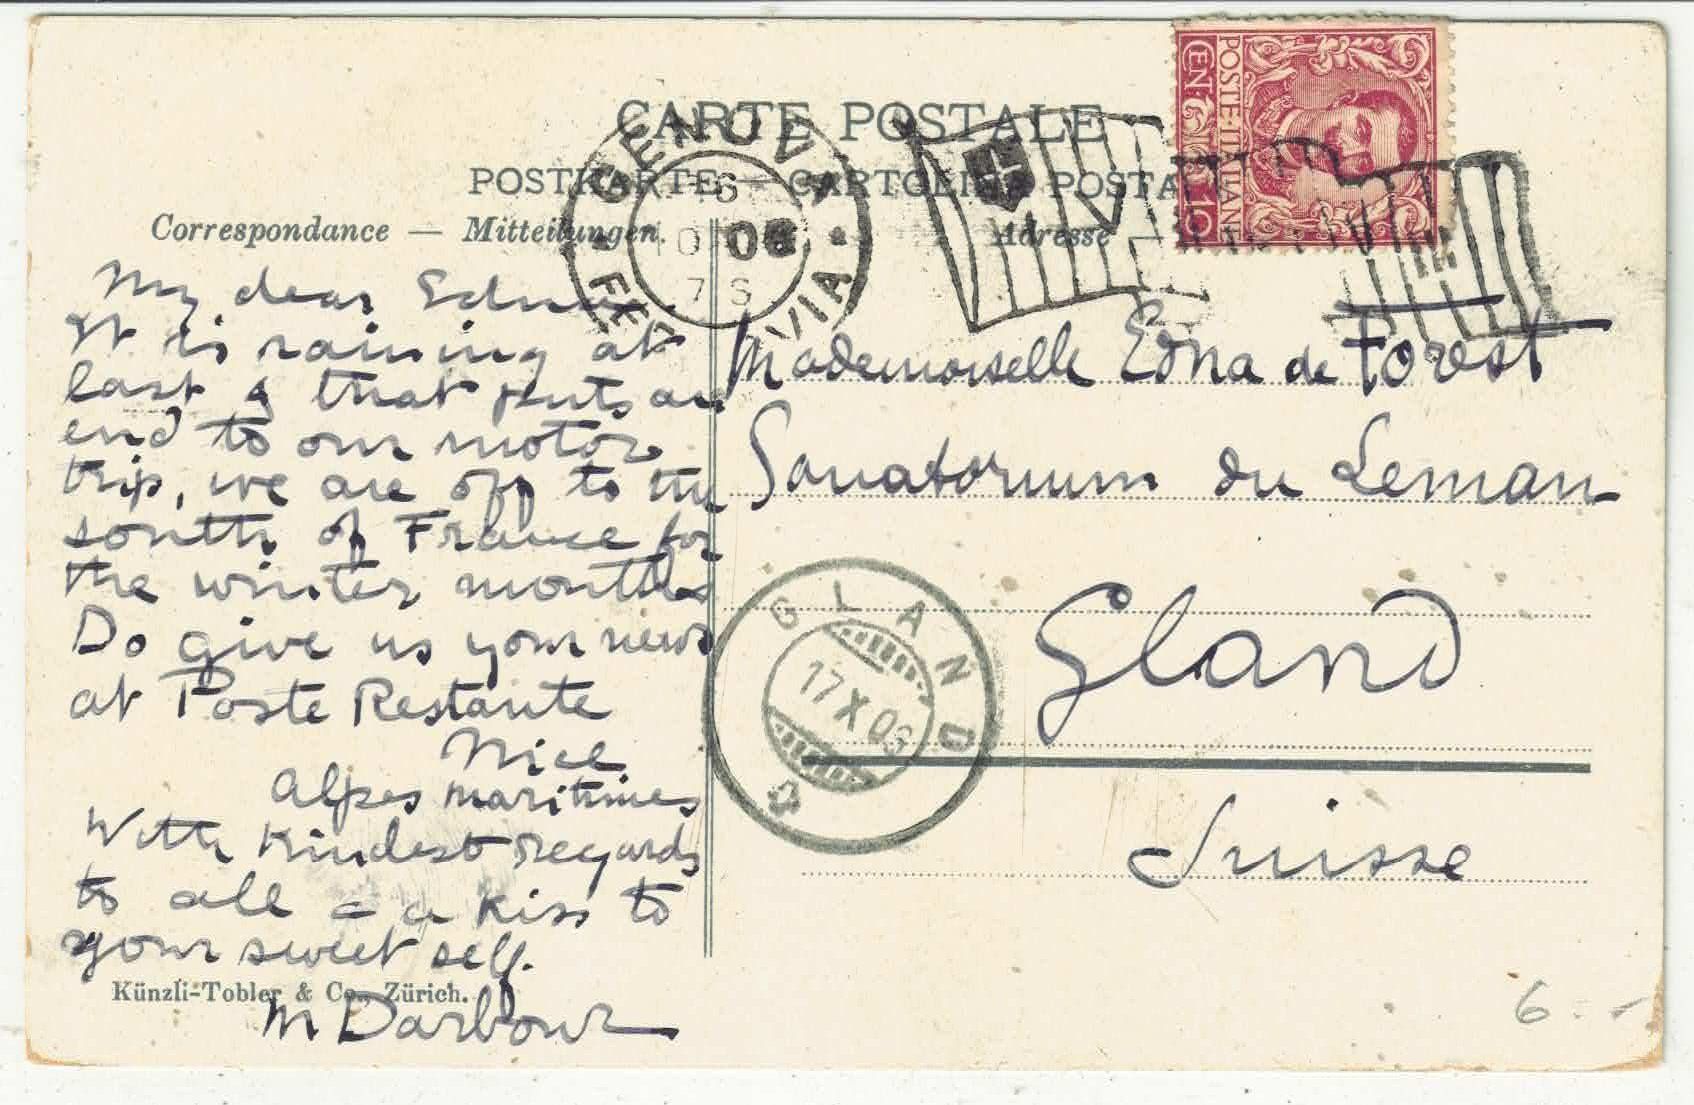 CARTE POSTALE
POSTKARTE — CARTOLINA POSTA
Correspondance — Mitteilungen.
Adresse
POSTE·ITALIANE
CENT 10
GENOVA
FERROVIA
16
10 06
7 S
My dear Edna
It is raining at
last & that puts an
end to our motor
trip, we are off to the
south of France for
the winter months
Do give us your news
at Poste Restante
Nice
Alpes maritimes
With kindest regards
to all – a kiss to
your sweet self.
M Darbour
Künzli-Tobler & Co., Zürich.
Mademoiselle Edna de Forest
Sanatorium du Leman
Gland
Suisse
GLAND
17 X 06
6.-